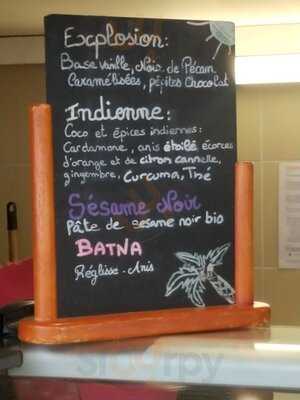 Explosion:
Base vanille, Noix de Pécan
Caramélisées, pépites Chocolat
Indienne:
Coco et épices indiennes:
Cardamome, anis étoilé écorces
d'orange et de citron cannelle,
gingembre, Curcuma, Thé
Sésame Noir
Pâte de sesame noir bio
BATNA
Réglisse - Anis